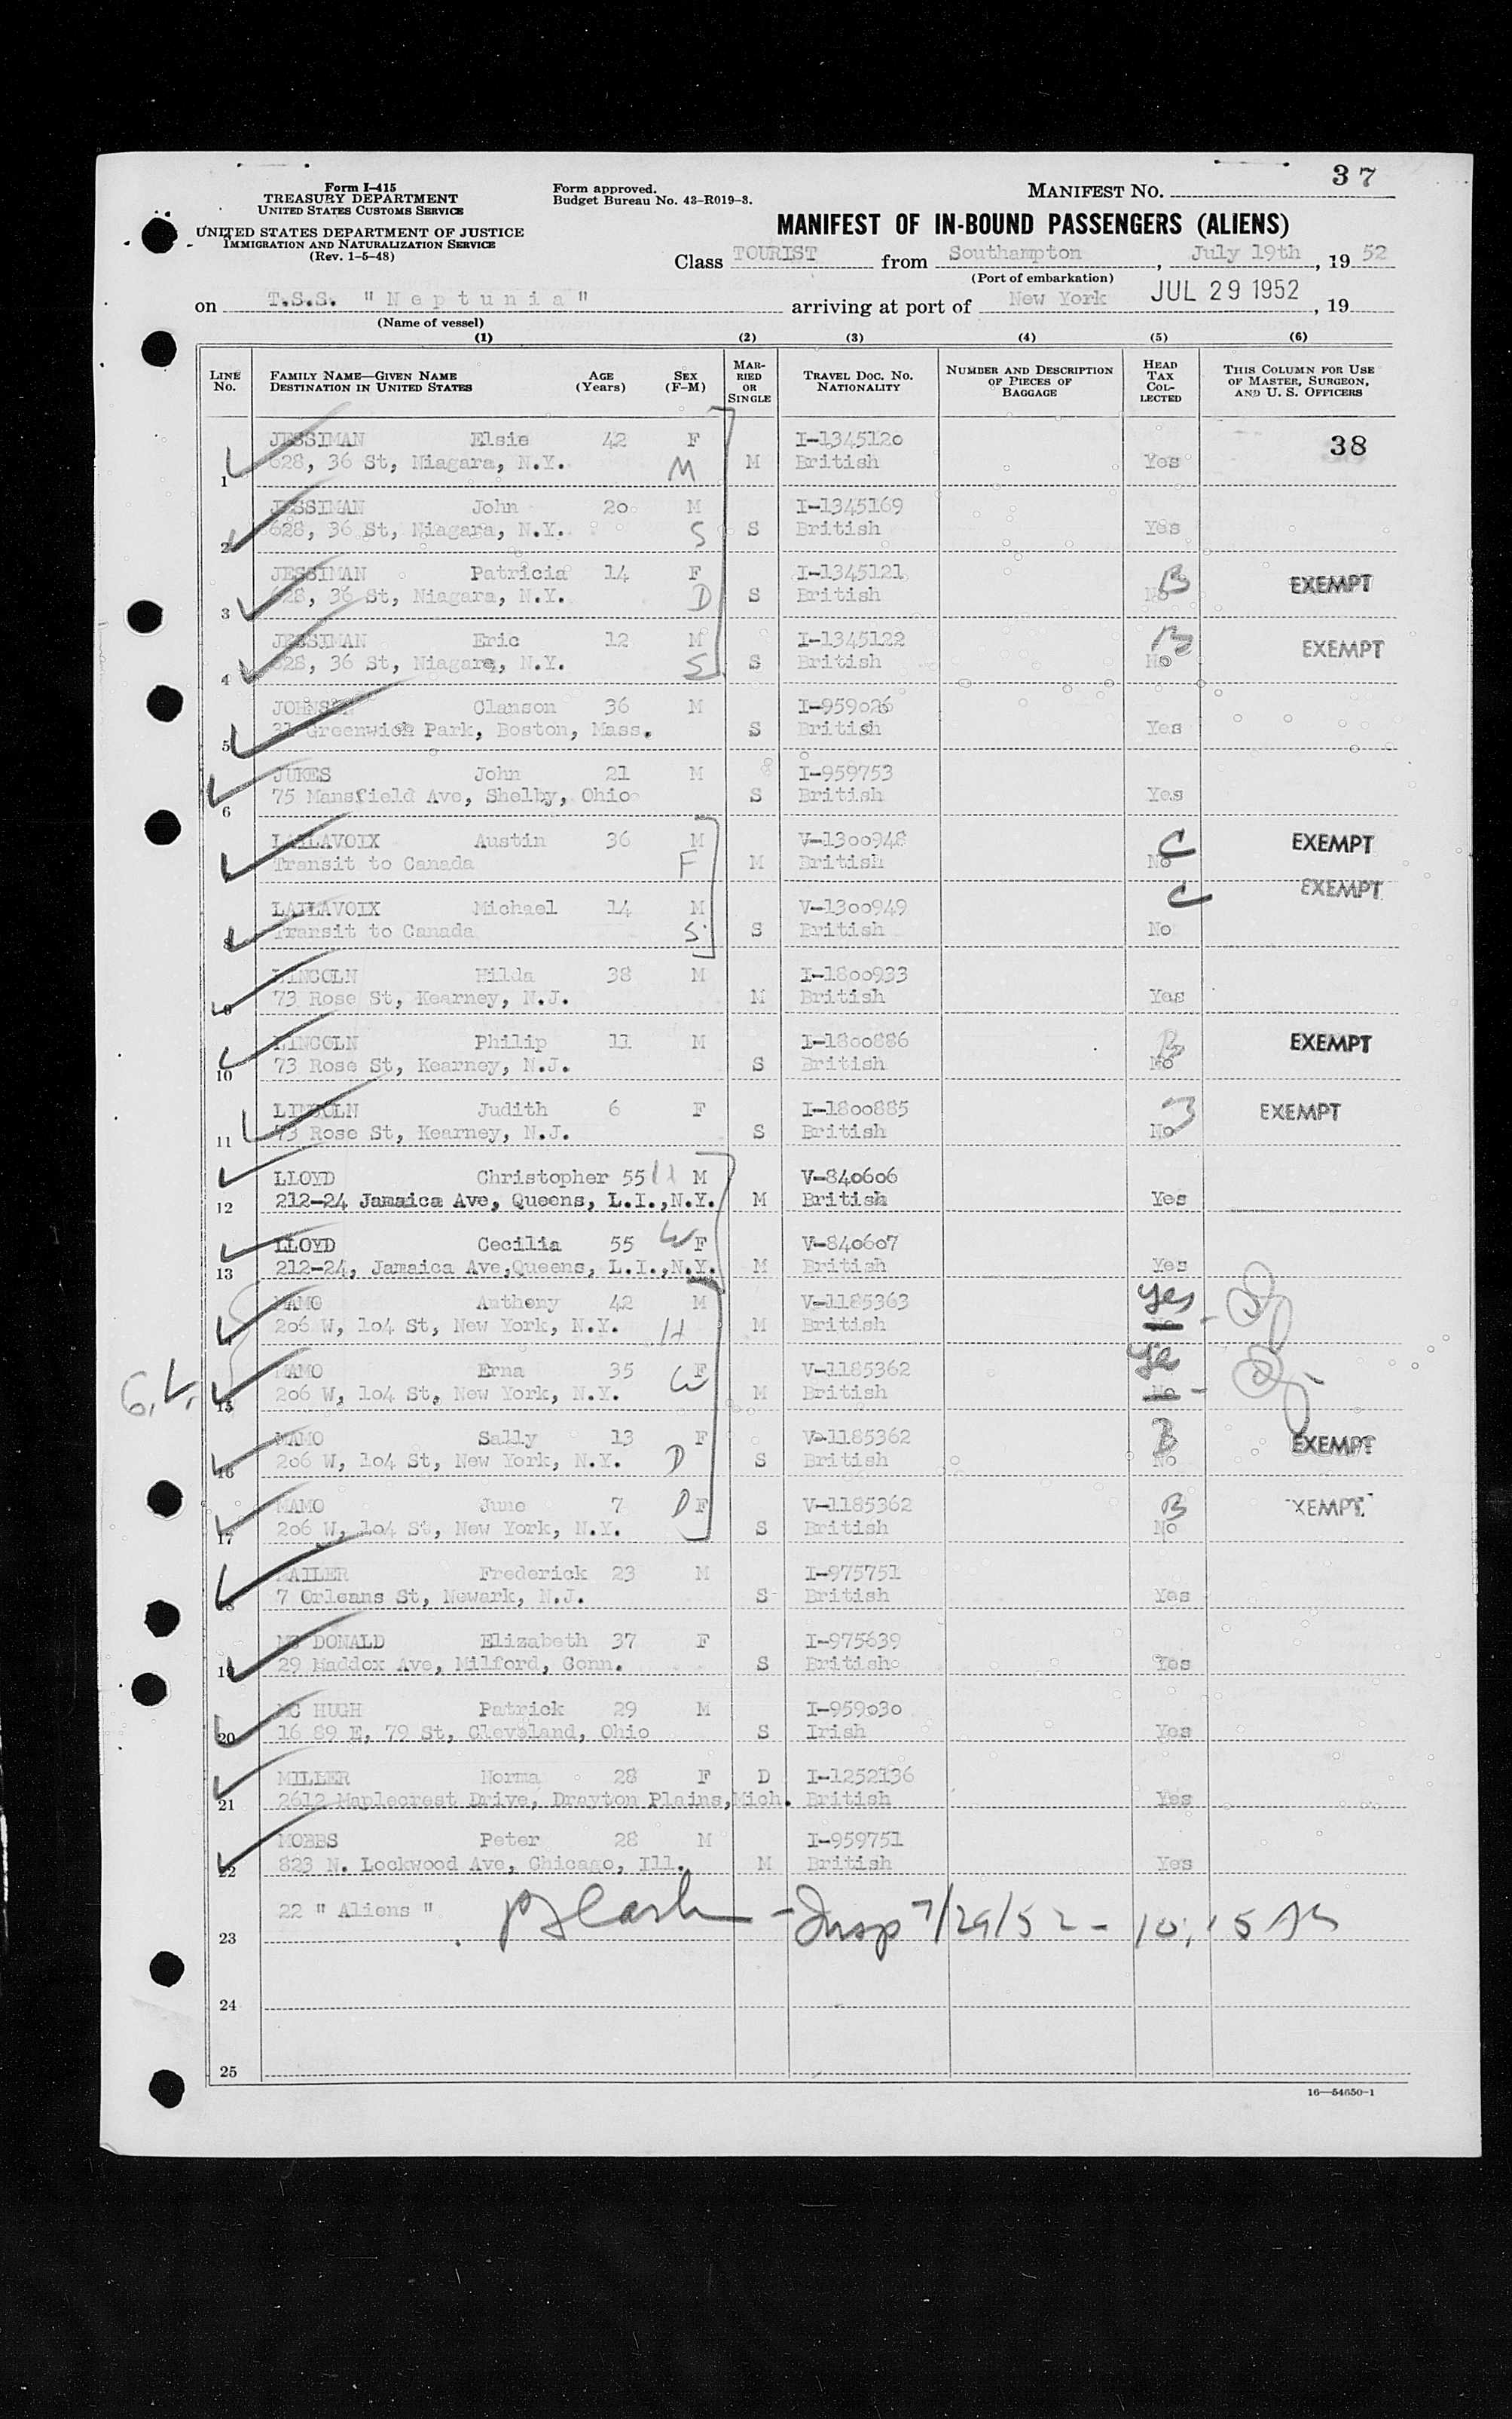 37
Form I-415
TREASURY DEPARTMENT
UNITED STATES CUSTOMS SERVICE
UNITED STATES DEPARTMENT OF JUSTICE
IMMIGRATION AND NATURALIZATION SERVICE
(Rev. 1-5-48)
Form approved.
Budget Bureau No. 43-R019-3.
MANIFEST NO.
MANIFEST OF IN-BOUND PASSENGERS (ALIENS)
Class TOURIST from Southampton, July 19th, 19 52
(Port of embarkation)
on T.S.S. "Neptunia" arriving at port of New York JUL 29 1952, 19
(Name of vessel)
(1) (2) (3) (4) (5) (6)
LINE No. FAMILY NAME—GIVEN NAME DESTINATION IN UNITED STATES AGE (Years) SEX (F-M) MARRIED OR SINGLE TRAVEL DOC. NO. NATIONALITY NUMBER AND DESCRIPTION OF PIECES OF BAGGAGE HEAD TAX COLLECTED THIS COLUMN FOR USE OF MASTER, SURGEON, AND U. S. OFFICERS
JESSIMAN Elsie 42 F I-1345120 38
1 628, 36 St, Niagara, N.Y. M M British Yes
JESSIMAN John 20 M I-1345169
2 628, 36 St, Niagara, N.Y. S S British Yes
JESSIMAN Patricia 14 F I-1345121 B EXEMPT
3 628, 36 St, Niagara, N.Y. D S British No
JESSIMAN Eric 12 M I-1345122 B EXEMPT
4 628, 36 St, Niagara, N.Y. S S British No
JOHNSON Clanson 36 M I-959026
5 31 Greenwich Park, Boston, Mass. S British Yes
JUKES John 21 M I-959753
6 75 Mansfield Ave, Shelby, Ohio S British Yes
LAILAVOIX Austin 36 M V-1300948 C EXEMPT
7 Transit to Canada F M British No
LAILAVOIX Michael 14 M V-1300949 C EXEMPT
8 Transit to Canada S S British No
LINCOLN Hilda 38 M I-1800933
9 73 Rose St, Kearney, N.J. M British Yes
LINCOLN Philip 11 M I-1800886 B EXEMPT
10 73 Rose St, Kearney, N.J. S British No
LINCOLN Judith 6 F I-1800885 B EXEMPT
11 73 Rose St, Kearney, N.J. S British No
LLOYD Christopher 55 H M V-840606
12 212-24 Jamaica Ave, Queens, L.I.,N.Y. M British Yes
LLOYD Cecilia 55 W F V-840607
13 212-24, Jamaica Ave,Queens, L.I.,N.Y. M British Yes
MAMO Anthony 42 M V-1185363 yes
14 206 W, 104 St, New York, N.Y. H M British No
MAMO Erna 35 F V-1185362 yes
15 206 W, 104 St, New York, N.Y. W M British No
MAMO Sally 13 F V-1185362 B EXEMPT
16 206 W, 104 St, New York, N.Y. D S British No
MAMO June 7 D F V-1185362 B XEMPT
17 206 W, 104 St, New York, N.Y. S British No
MAILER Frederick 23 M I-975751
18 7 Orleans St, Newark, N.J. S British Yes
MC DONALD Elizabeth 37 F I-975639
19 29 Maddox Ave, Milford, Conn. S British Yes
MC HUGH Patrick 29 M I-959030
20 16 89 E, 79 St, Cleveland, Ohio S Irish Yes
MILLER Norma 28 F D I-1252136
21 2612 Maplecrest Drive, Drayton Plains,Mich. British Yes
MOBBS Peter 28 M I-959751
22 823 N. Lockwood Ave, Chicago, Ill. M British Yes
22 "Aliens" - Insp 7/29/52 -
23
24
25
16—54650-1